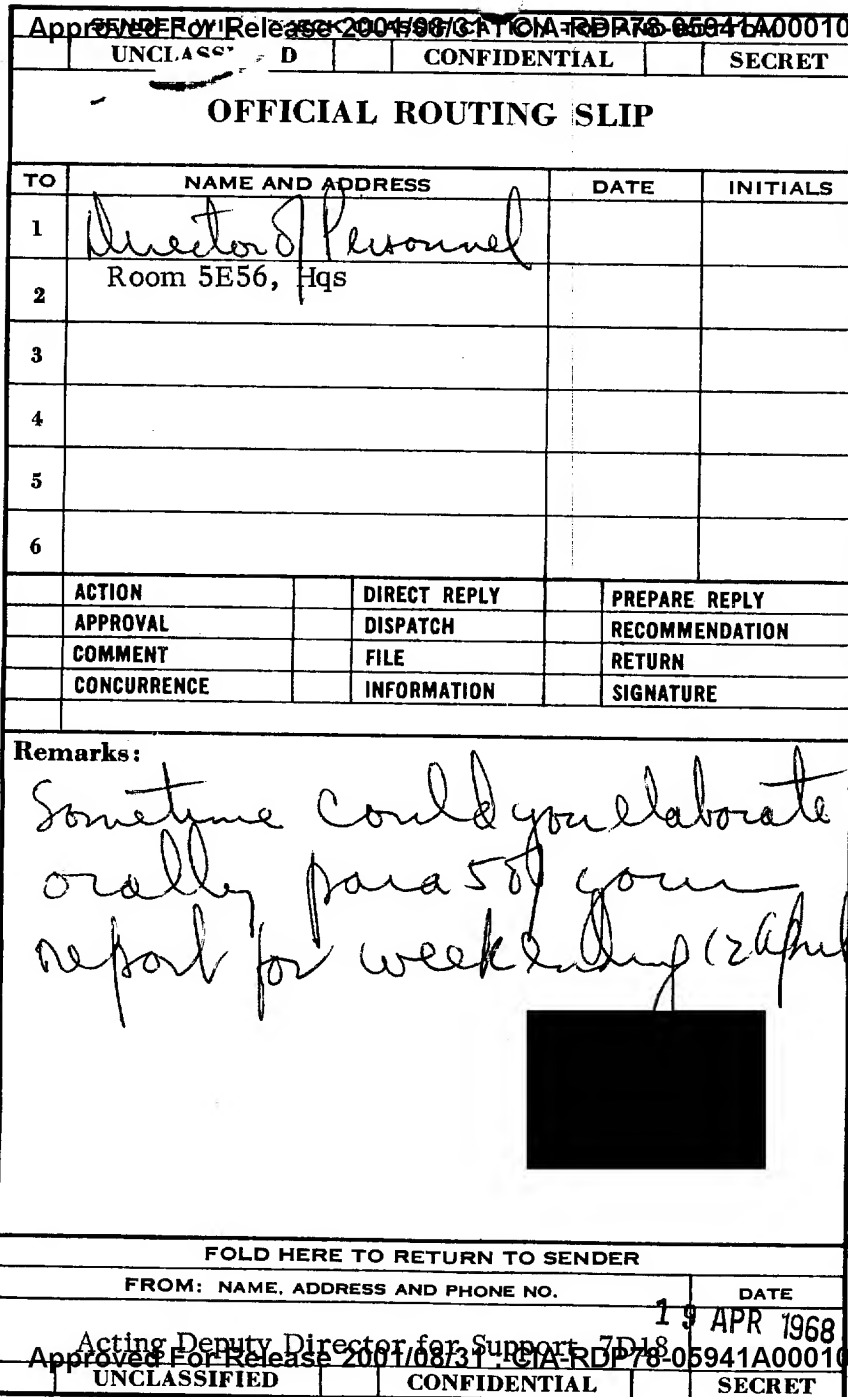 SENDER WILL CHECK CLASSIFICATION TOP AND BOTTOM
Approved For Release 2001/08/31 : CIA-RDP78-05941A00010
UNCLASS D CONFIDENTIAL SECRET
OFFICIAL ROUTING SLIP
TO NAME AND ADDRESS DATE INITIALS
1 Director of Personnel
Room 5E56, Hqs
2
3
4
5
6
ACTION DIRECT REPLY PREPARE REPLY
APPROVAL DISPATCH RECOMMENDATION
COMMENT FILE RETURN
CONCURRENCE INFORMATION SIGNATURE
Remarks:
Sometime could you elaborate
orally para 5 of your
report for week ending 12 April
FOLD HERE TO RETURN TO SENDER
FROM: NAME, ADDRESS AND PHONE NO. DATE
19 APR 1968
Acting Deputy Director for Support 7D18
Approved For Release 2001/08/31 : CIA-RDP78-05941A00010
UNCLASSIFIED CONFIDENTIAL SECRET